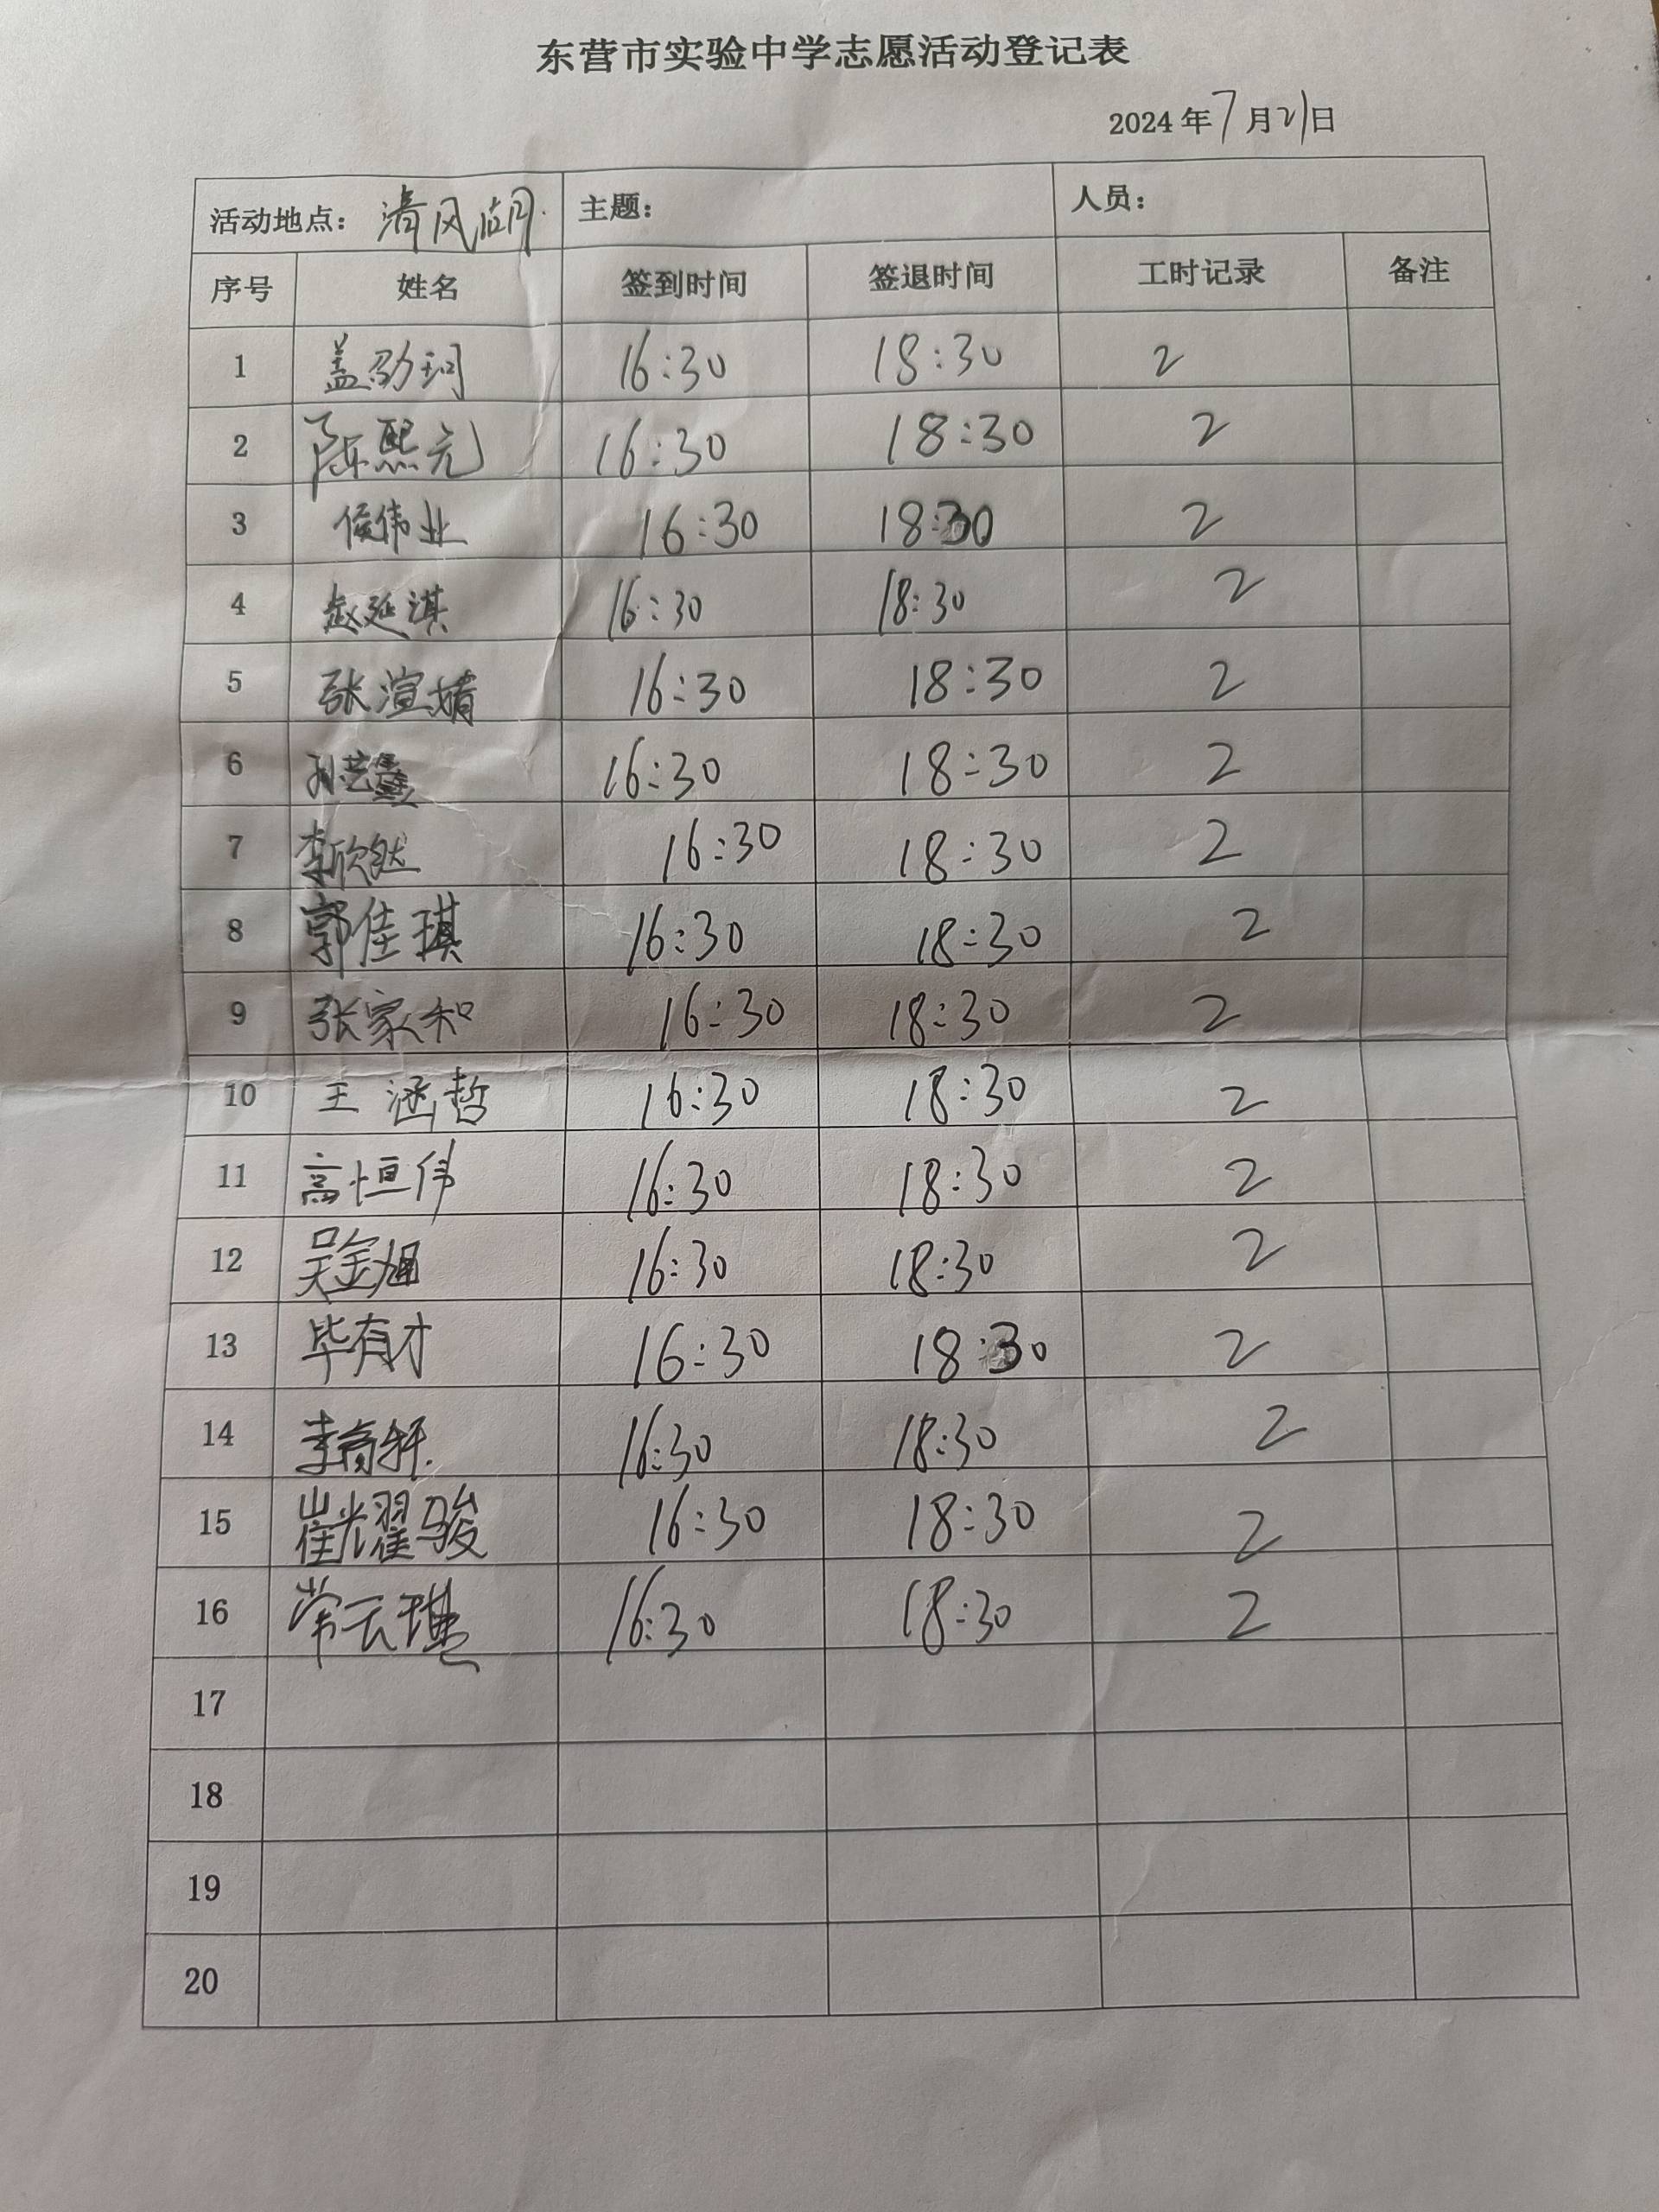 东营市实验中学志愿活动登记表
2024年7月21日
活动地点: 清风湖 主题: 人员:
序号 姓名 签到时间 签退时间 工时记录 备注
1 盖劭珂 16:30 18:30 2
2 陈熙元 16:30 18:30 2
3 侯伟业 16:30 18:30 2
4 赵延淇 16:30 18:30 2
5 张渲婧 16:30 18:30 2
6 孙艺 16:30 18:30 2
7 李欣然 16:30 18:30 2
8 郭佳琪 16:30 18:30 2
9 张家和 16:30 18:30 2
10 王涵哲 16:30 18:30 2
11 高恒伟 16:30 18:30 2
12 吴金旭 16:30 18:30 2
13 毕有才 16:30 18:30 2
14 李 轩 16:30 18:30 2
15 崔耀骏 16:30 18:30 2
16 常云琪 16:30 18:30 2
17
18
19
20